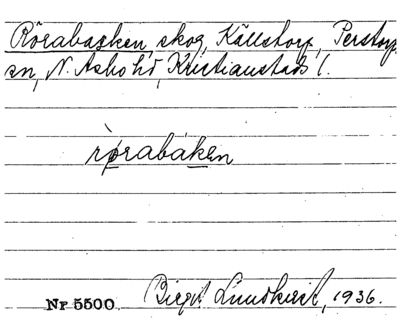 Rörabacken, skog, Källstorp, Perstorp
sn, N. Åsbo hd, Kristianstads l.
rørabáken
Nr 5500. Birgit Lundkvist, 1936.